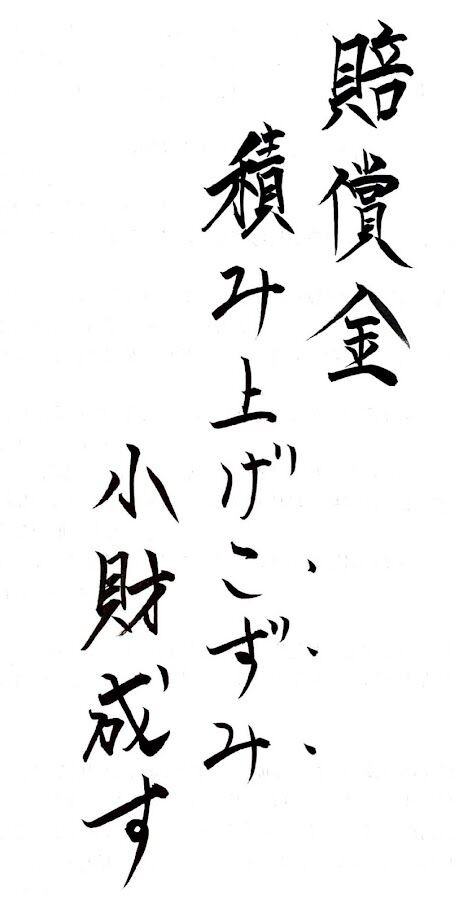 賠償金
積み上げこずみ
小財成す